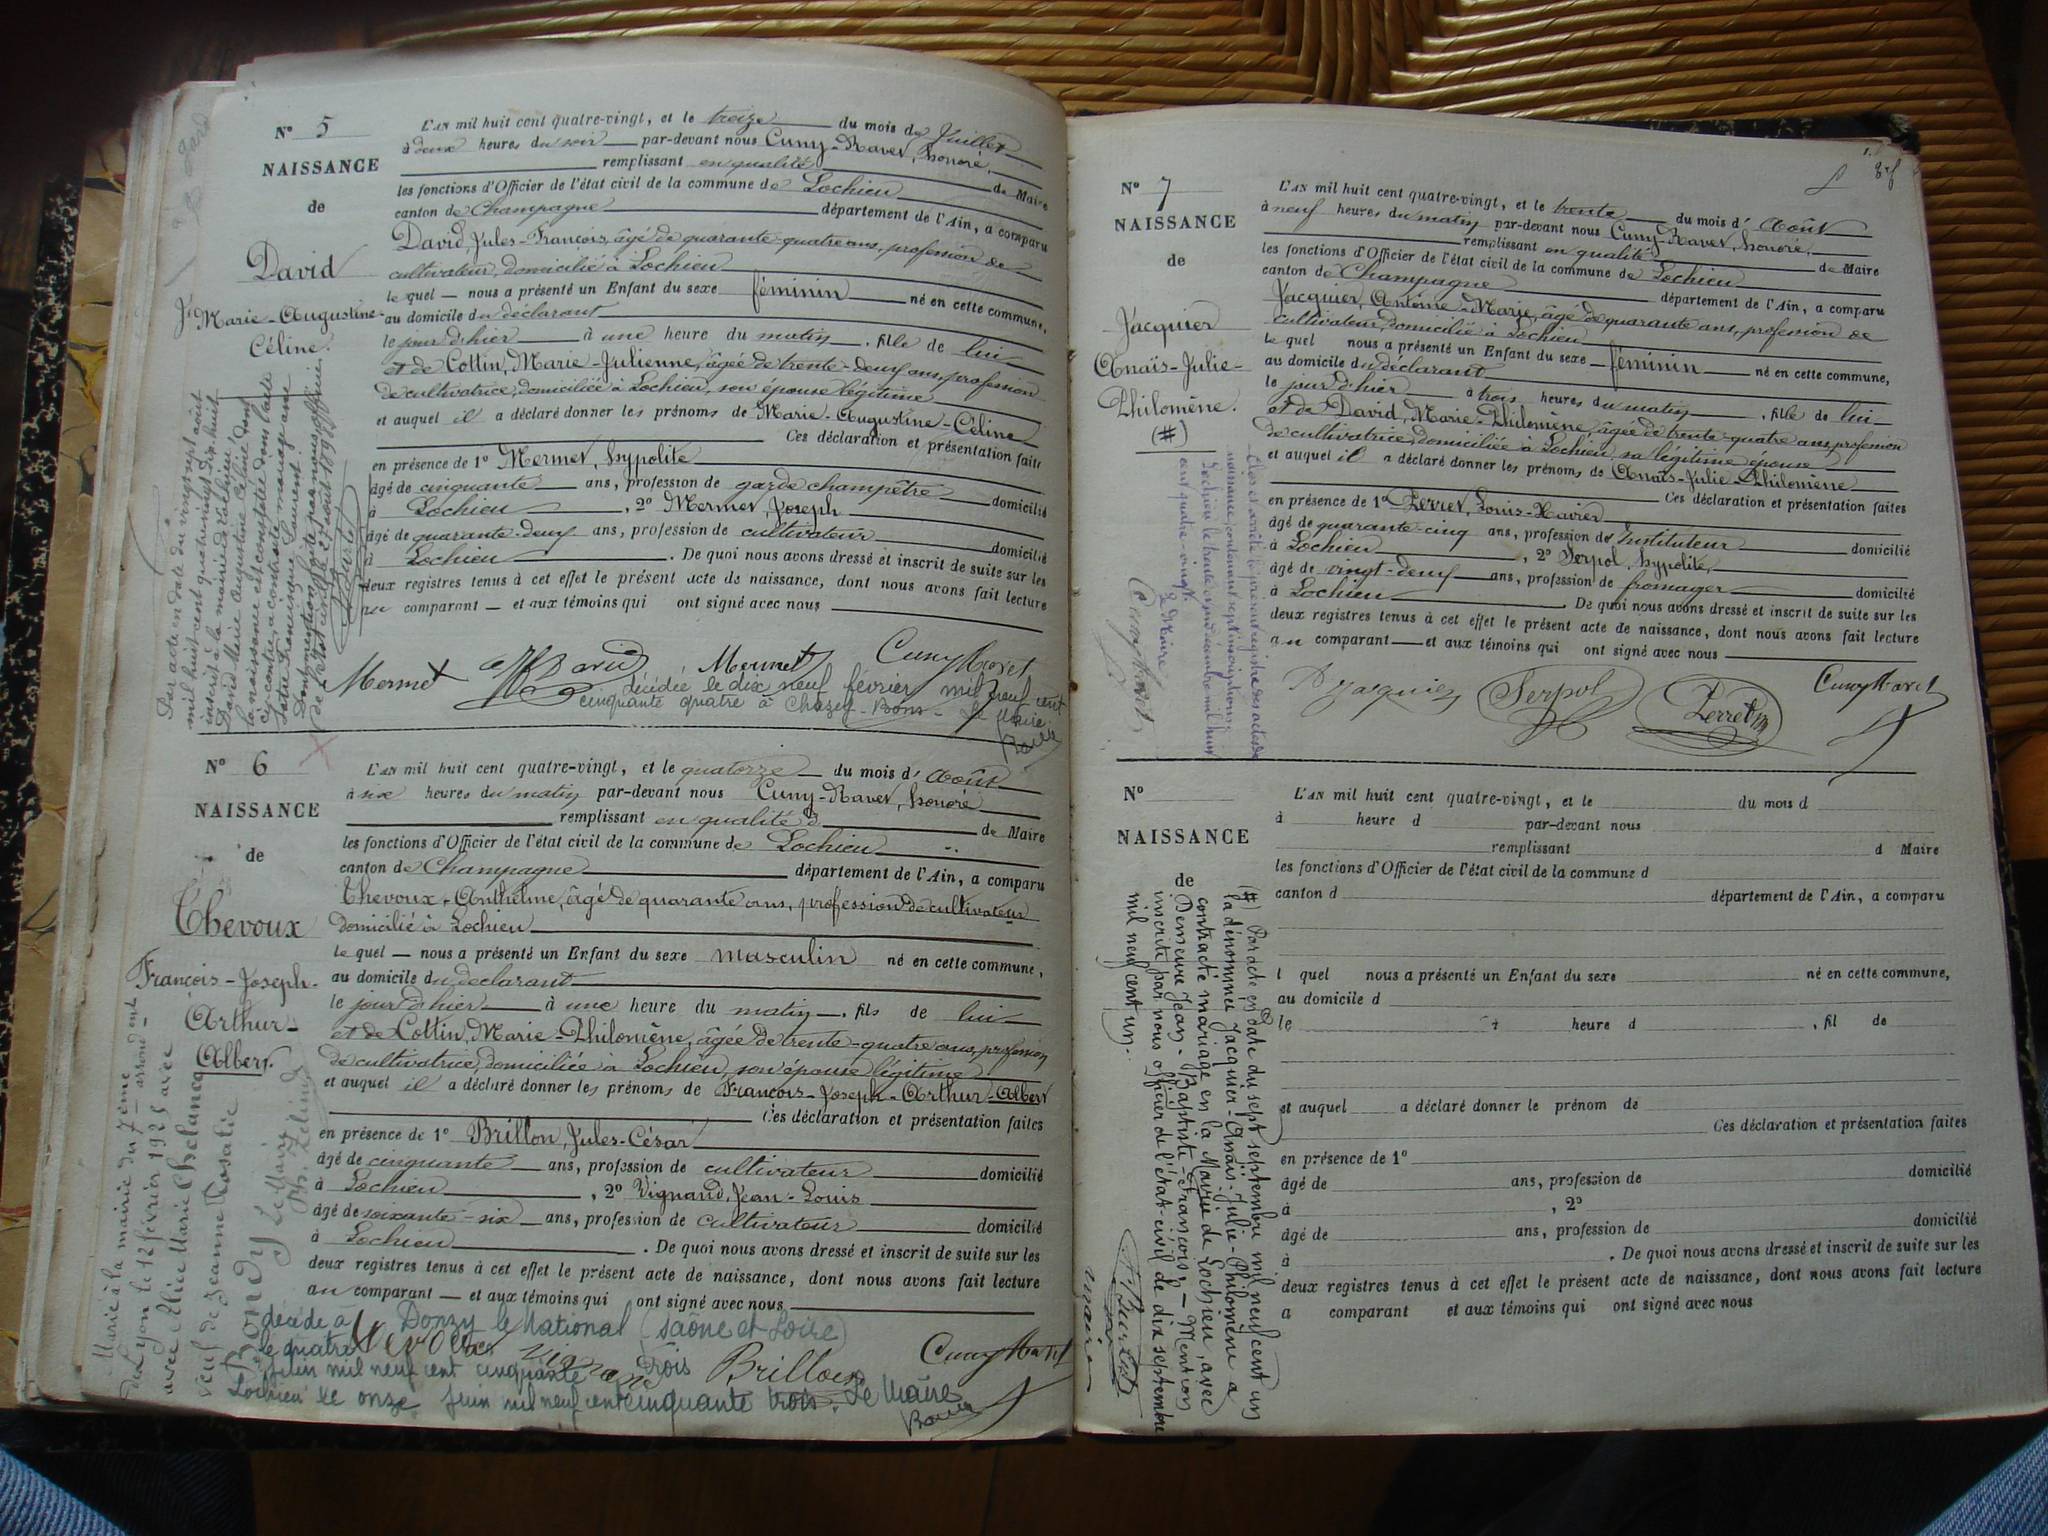 N° 5
NAISSANCE
de
David
Marie-Augustine-
Céline.
L'AN mil huit cent quatre-vingt, et le treize du mois de Juillet
à deux heures du soir par-devant nous Cuny-Ravet, honoré,
remplissant en qualité de Maire
les fonctions d'Officier de l'état civil de la commune de Lochieu
canton de Champagne département de l'Ain, a comparu
David, Jules-François, âgé de quarante-quatre ans, profession de
cultivateur, domicilié à Lochieu
le quel — nous a présenté un Enfant du sexe féminin né en cette commune,
au domicile du déclarant
le jour d'hier à une heure du matin, fille de lui
et de Cottin, Marie-Julienne, âgée de trente-deux ans, profession
de cultivatrice, domiciliée à Lochieu, son épouse légitime
et auquel il a déclaré donner les prénoms de Marie-Augustine-Céline
Ces déclaration et présentation faites
en présence de 1° Mermet, hypolite
âgé de cinquante ans, profession de garde champêtre domicilié
à Lochieu, 2° Mermet, Joseph
âgé de quarante-deux ans, profession de cultivateur domicilié
à Lochieu. De quoi nous avons dressé et inscrit de suite sur les
deux registres tenus à cet effet le présent acte de naissance, dont nous avons fait lecture
au comparant — et aux témoins qui ont signé avec nous
Mermet David Mermet Cuny Ravet
décédée le dix neuf février mil neuf cent
cinquante quatre à Chazey-Bons - Le Maire
Par acte en date du vingt sept août
mil huit cent quatre vingt dix huit
inscrit à la mairie de Lochieu,
David Marie Augustine Céline dont
la naissance est constatée dans l'acte
ci-contre, a contracté mariage avec
N° 6
NAISSANCE
de
Thevoux
François-Joseph-
Arthur-
Albert.
L'AN mil huit cent quatre-vingt, et le quatorze du mois d'Août
à six heures du matin par-devant nous Cuny-Ravet, honoré
remplissant en qualité d de Maire
les fonctions d'Officier de l'état civil de la commune de Lochieu
canton de Champagne département de l'Ain, a comparu
Thevoux-Anthelme, âgé de quarante ans, profession de cultivateur
domicilié à Lochieu
le quel — nous a présenté un Enfant du sexe masculin né en cette commune,
au domicile du déclarant
le jour d'hier à une heure du matin, fils de lui
et de Cottin, Marie-Philomène, âgée de trente-quatre ans, profession
de cultivatrice, domiciliée à Lochieu, son épouse légitime
et auquel il a déclaré donner les prénoms de François-Joseph-Arthur-Albert
Ces déclaration et présentation faites
en présence de 1° Brillon, Jules-César
âgé de cinquante ans, profession de cultivateur domicilié
à Lochieu, 2° Vignand, Jean-Louis
âgé de soixante-six ans, profession de cultivateur domicilié
à Lochieu. De quoi nous avons dressé et inscrit de suite sur les
deux registres tenus à cet effet le présent acte de naissance, dont nous avons fait lecture
au comparant — et aux témoins qui ont signé avec nous
décédé à Donzy le National (Saône et Loire)
le quatre
juin mil neuf cent cinquante trois Brillon Cuny Ravet
Lochieu le onze juin mil neuf cent cinquante trois. Le Maire
Marié à la mairie du 7ème arrondent
de Lyon le 12 février 1925 avec
avec Alice Marie Chelancq
veuf de Jeanne Rosalie
Bondy Le Maire
N° 7
NAISSANCE
de
Jacquier
Anaïs-Julie-
Philomène.
(#)
L'AN mil huit cent quatre-vingt, et le trente du mois d'Août
à neuf heures du matin par-devant nous Cuny-Ravet, honoré,
remplissant en qualité de Maire
les fonctions d'Officier de l'état civil de la commune de Lochieu
canton de Champagne département de l'Ain, a comparu
Jacquier, Antoine-Marie, âgé de quarante ans, profession de
cultivateur, domicilié à Lochieu
le quel nous a présenté un Enfant du sexe féminin né en cette commune,
au domicile du déclarant
le jour d'hier à trois heures du matin, fille de lui
et de David, Marie-Philomène, âgée de trente-quatre ans, profession
de cultivatrice, domiciliée à Lochieu, sa légitime épouse
et auquel il a déclaré donner les prénoms de Anaïs-Julie-Philomène
Ces déclaration et présentation faites
en présence de 1° Perret, Louis-Xavier
âgé de quarante-cinq ans, profession de Instituteur domicilié
à Lochieu, 2° Serpol, hypolite,
âgé de vingt-deux ans, profession de fromager domicilié
à Lochieu. De quoi nous avons dressé et inscrit de suite sur les
deux registres tenus à cet effet le présent acte de naissance, dont nous avons fait lecture
au comparant — et aux témoins qui ont signé avec nous
Jacquier Serpol Perret Cuny Ravet
Clos et arrêté le présent registre des actes de
naissance, contenant sept inscriptions
Lochieu le trente et un décembre mil huit
cent quatre-vingt.
Le Maire
Cuny Ravet
N°
NAISSANCE
de
L'AN mil huit cent quatre-vingt, et le du mois d
à heure d par-devant nous
remplissant d Maire
les fonctions d'Officier de l'état civil de la commune d
canton d département de l'Ain, a comparu
l quel nous a présenté un Enfant du sexe né en cette commune,
au domicile d
le à heure d , fil de
et auquel a déclaré donner le prénom de
Ces déclaration et présentation faites
en présence de 1°
âgé de ans, profession de domicilié
à , 2°
âgé de ans, profession de domicilié
à . De quoi nous avons dressé et inscrit de suite sur les
deux registres tenus à cet effet le présent acte de naissance, dont nous avons fait lecture
a comparant et aux témoins qui ont signé avec nous
(#) Par acte en date du sept septembre mil neuf cent un
la dénommée Jacquier-Anaïs-Julie-Philomène a
contracté mariage en la Mairie de Lochieu, avec
Demeure Jean-Baptiste-François. — Mention
inscrite par nous officier de l'état-civil le dix septembre
mil neuf cent un.